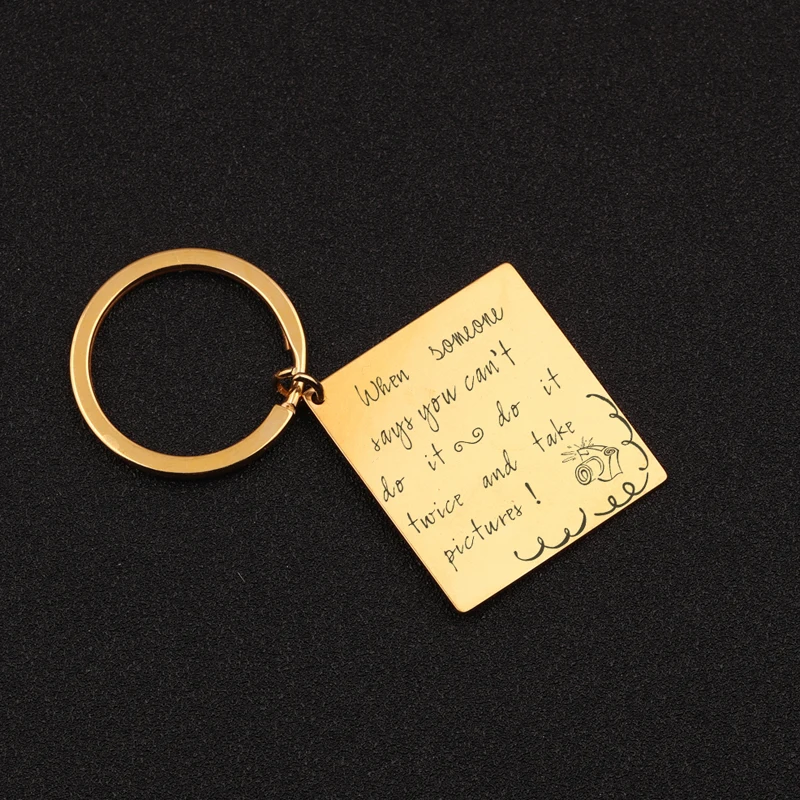 When someone
says you can't
do it ~ do it
twice and take
pictures!